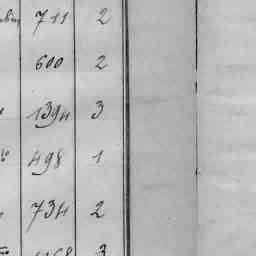 711 2
600 2
1394 3
498 1
734 2
3